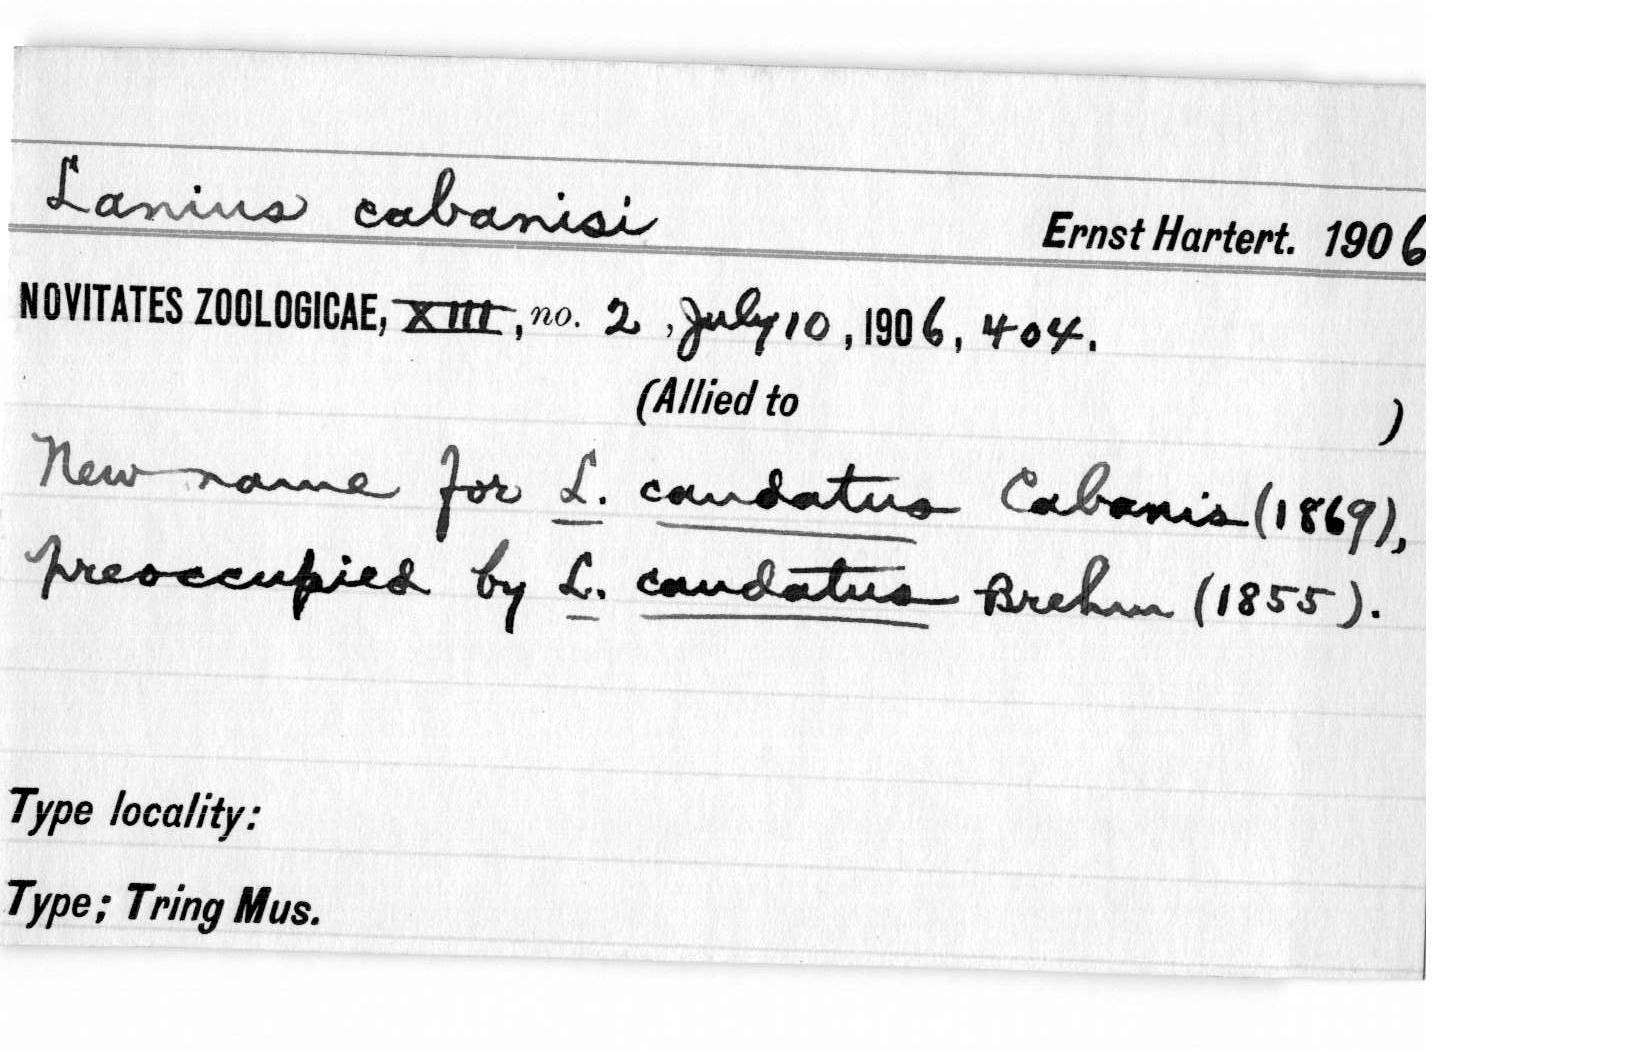 Lanius cabanisi Ernst Hartert. 1906
NOVITATES ZOOLOGICAE, XIII, no. 2, July 10, 1906, 404.
(Allied to )
New name for L. caudatus Cabanis (1869),
preoccupied by L. caudatus Brehm (1855).
Type locality:
Type; Tring Mus.